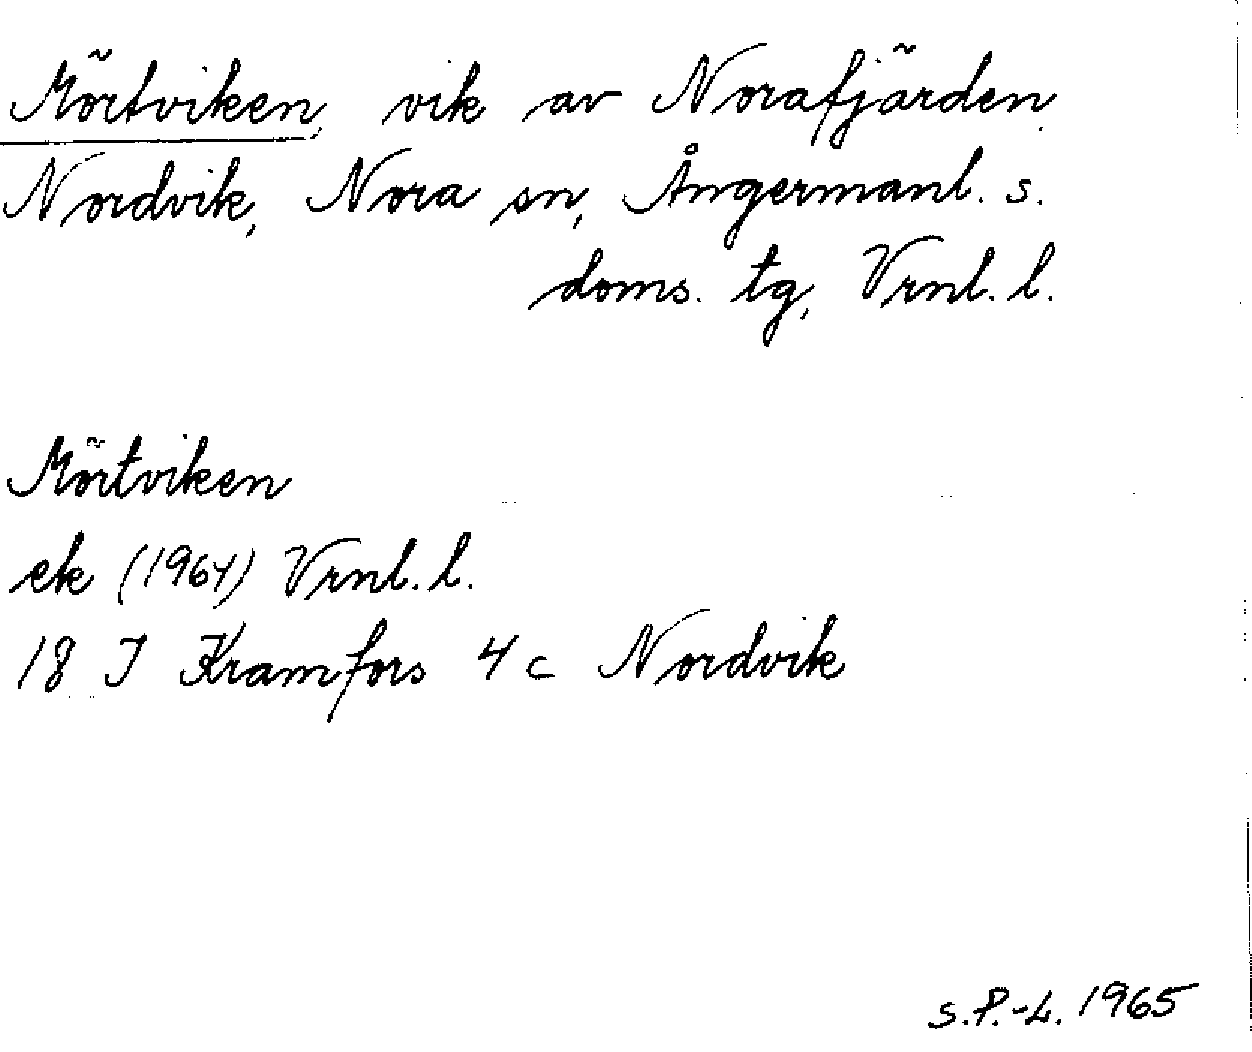 Mörtviken, vik av Norafjärden.
Nordvik, Nora sn, Ångermanl. s.
doms. tg, Vrnl. l.
Mörtviken
ek (1964) Vrnl. l.
18 I Kramfors 4 c Nordvik
S.P.-L. 1965